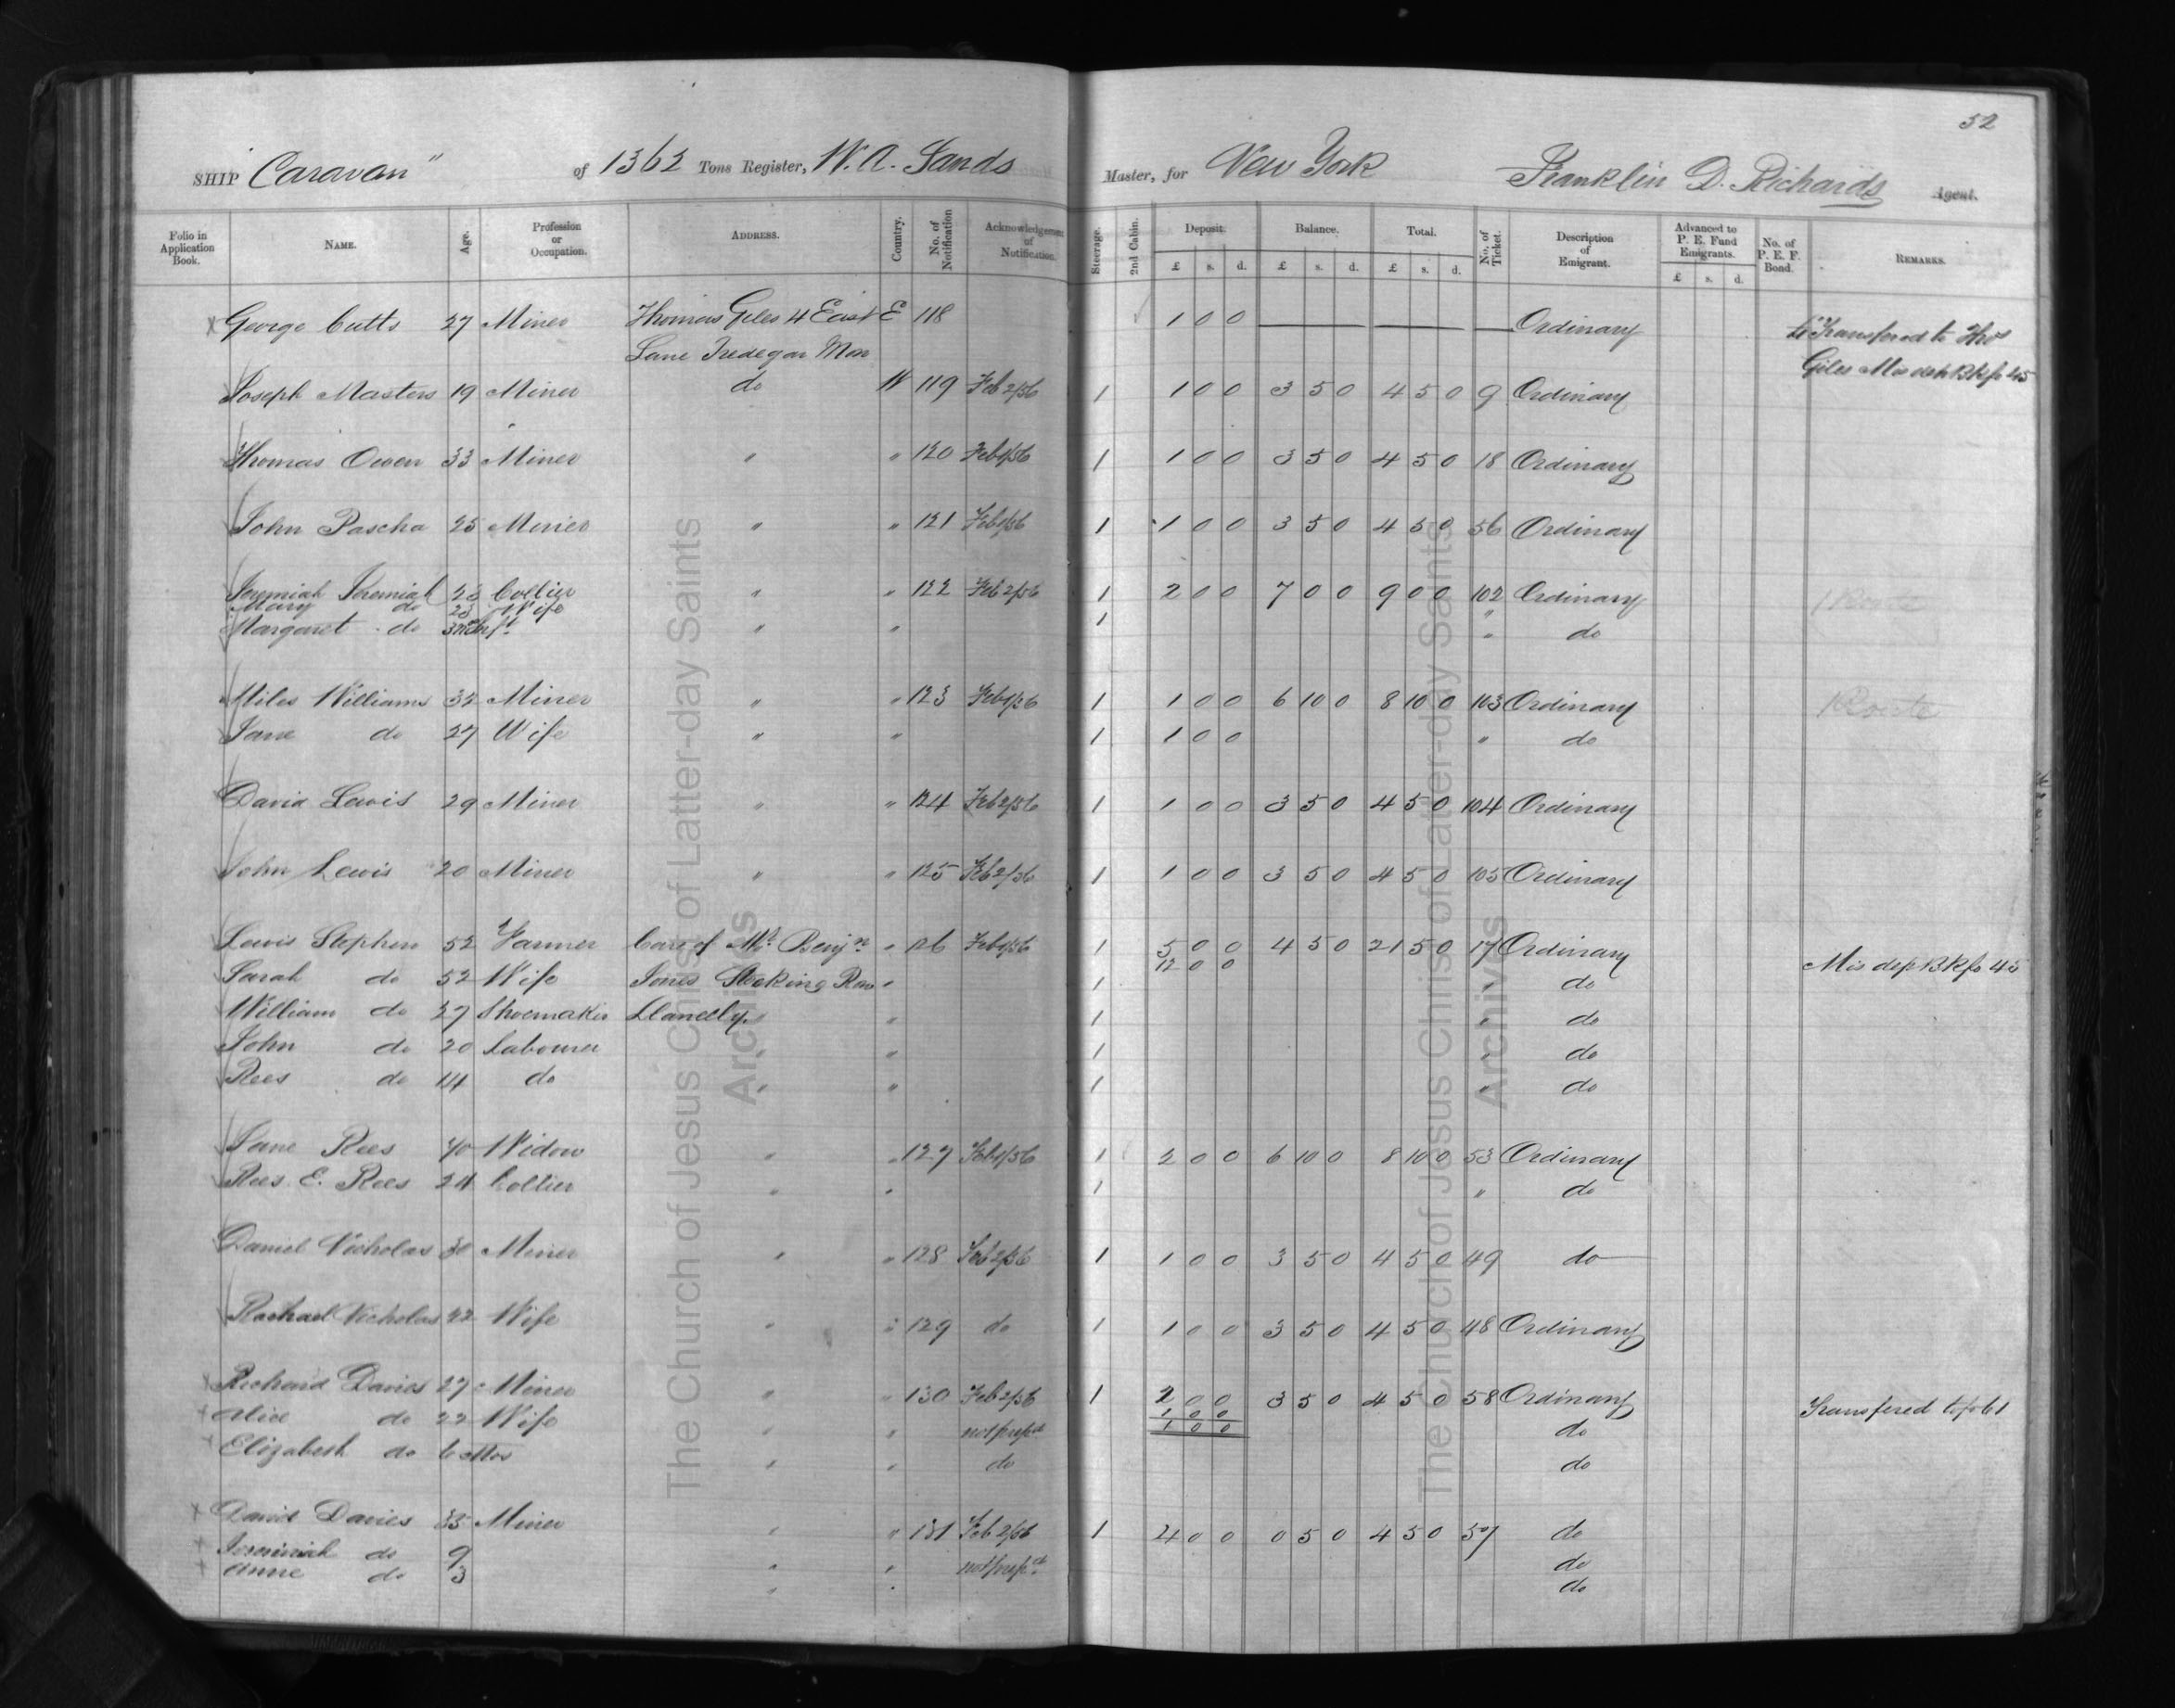 52
SHIP "Caravan" of 1362 Tons Register, W. A. Sands Master, for New York Franklin D. Richards Agent.
Folio in Application Book. NAME. Age. Profession or Occupation. ADDRESS. Country. No. of Notification Acknowledgement of Notification. Steerage. 2nd Cabin. Deposit. Balance. Total. No. of Ticket. Description of Emigrant. Advanced to P. E. Fund Emigrants. No. of P. E. F. Bond. REMARKS.
£ s. d. £ s. d. £ s. d. £ s. d.
George Cutts 27 Miner Thomas Giles 4 East E 118 1 0 0 Ordinary £1 Transfered to Thos
Lane Tredegar Mon Giles Mis dep Bk fo 45
Joseph Masters 19 Miner do W 119 Feb 2/56 1 1 0 0 3 5 0 4 5 0 9 Ordinary
Thomas Owen 33 Miner " " 120 Feb 1/56 1 1 0 0 3 5 0 4 5 0 18 Ordinary
John Pascha 25 Miner " " 121 Feb 1/56 1 1 0 0 3 5 0 4 5 0 56 Ordinary
Jeremiah Jeremiah 23 Collier " " 122 Feb 2/56 1 2 0 0 7 0 0 9 0 0 102 Ordinary 1 Route
Mary do 23 Wife 1 "
Margaret do " " " do
Miles Williams 32 Miner " " 123 Feb 1/56 1 1 0 0 6 10 0 8 10 0 103 Ordinary 1 Route
Jane do 27 Wife " " 1 1 0 0 " do
David Lewis 29 Miner " " 124 Feb 2/56 1 1 0 0 3 5 0 4 5 0 104 Ordinary
John Lewis 20 Miner " " 125 Feb 2/56 1 1 0 0 3 5 0 4 5 0 105 Ordinary
Lewis Stephen 52 Farmer Care of Mr. Benjn " 126 Feb 1/56 1 5 0 0 4 5 0 21 5 0 17 Ordinary
12 0 0 Mis dep Bk fo 45
Sarah do 52 Wife Jones Stocking Row " 1 " do
William do 27 Shoemaker Llanelly " " 1 " do
John do 20 Labourer " " 1 " do
Rees do 14 do " " 1 " do
Jane Rees 40 Widow " " 127 Feb 1/56 1 2 0 0 6 10 0 8 10 0 53 Ordinary
Rees E. Rees 24 Collier " " 1 " do
Daniel Nicholas 30 Miner " " 128 Feb 2/56 1 1 0 0 3 5 0 4 5 0 49 do
Rachael Nicholas 22 Wife " " 129 do 1 1 0 0 3 5 0 4 5 0 48 Ordinary
Richard Davies 27 Miner " " 130 Feb 2/56 1 2 0 0 3 5 0 4 5 0 58 Ordinary Transfered to fo 61
1 0 0
Alice do 22 Wife " " not prepd 1 0 0 do
Elizabeth do 6 Mos " " do do
David Davies 35 Miner " " 131 Feb 2/56 1 4 0 0 0 5 0 4 5 0 57 do
Jeremiah do 9 " " not prepd do
Anne do 3 " " do
The Church of Jesus Christ of Latter-day Saints
Archives
The Church of Jesus Christ of Latter-day Saints
Archives